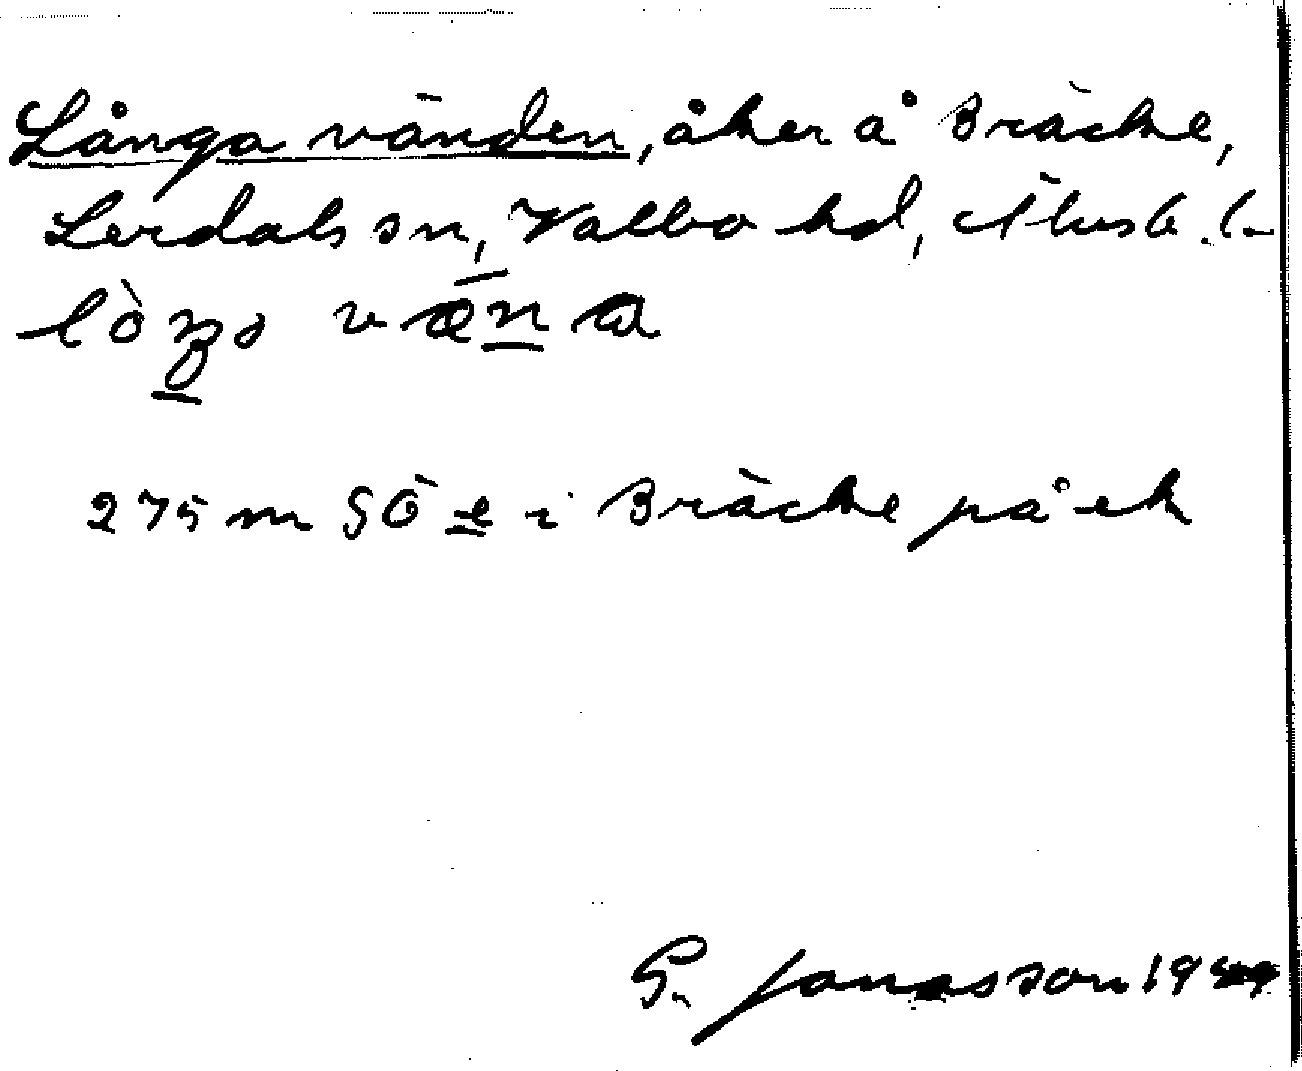 Långa vänden, åker å Bräcke,
Lerdals sn, Valbo hd, Älvsb. l.
275 m SÖ e i Bräcke på ek
G. Jonasson 1949